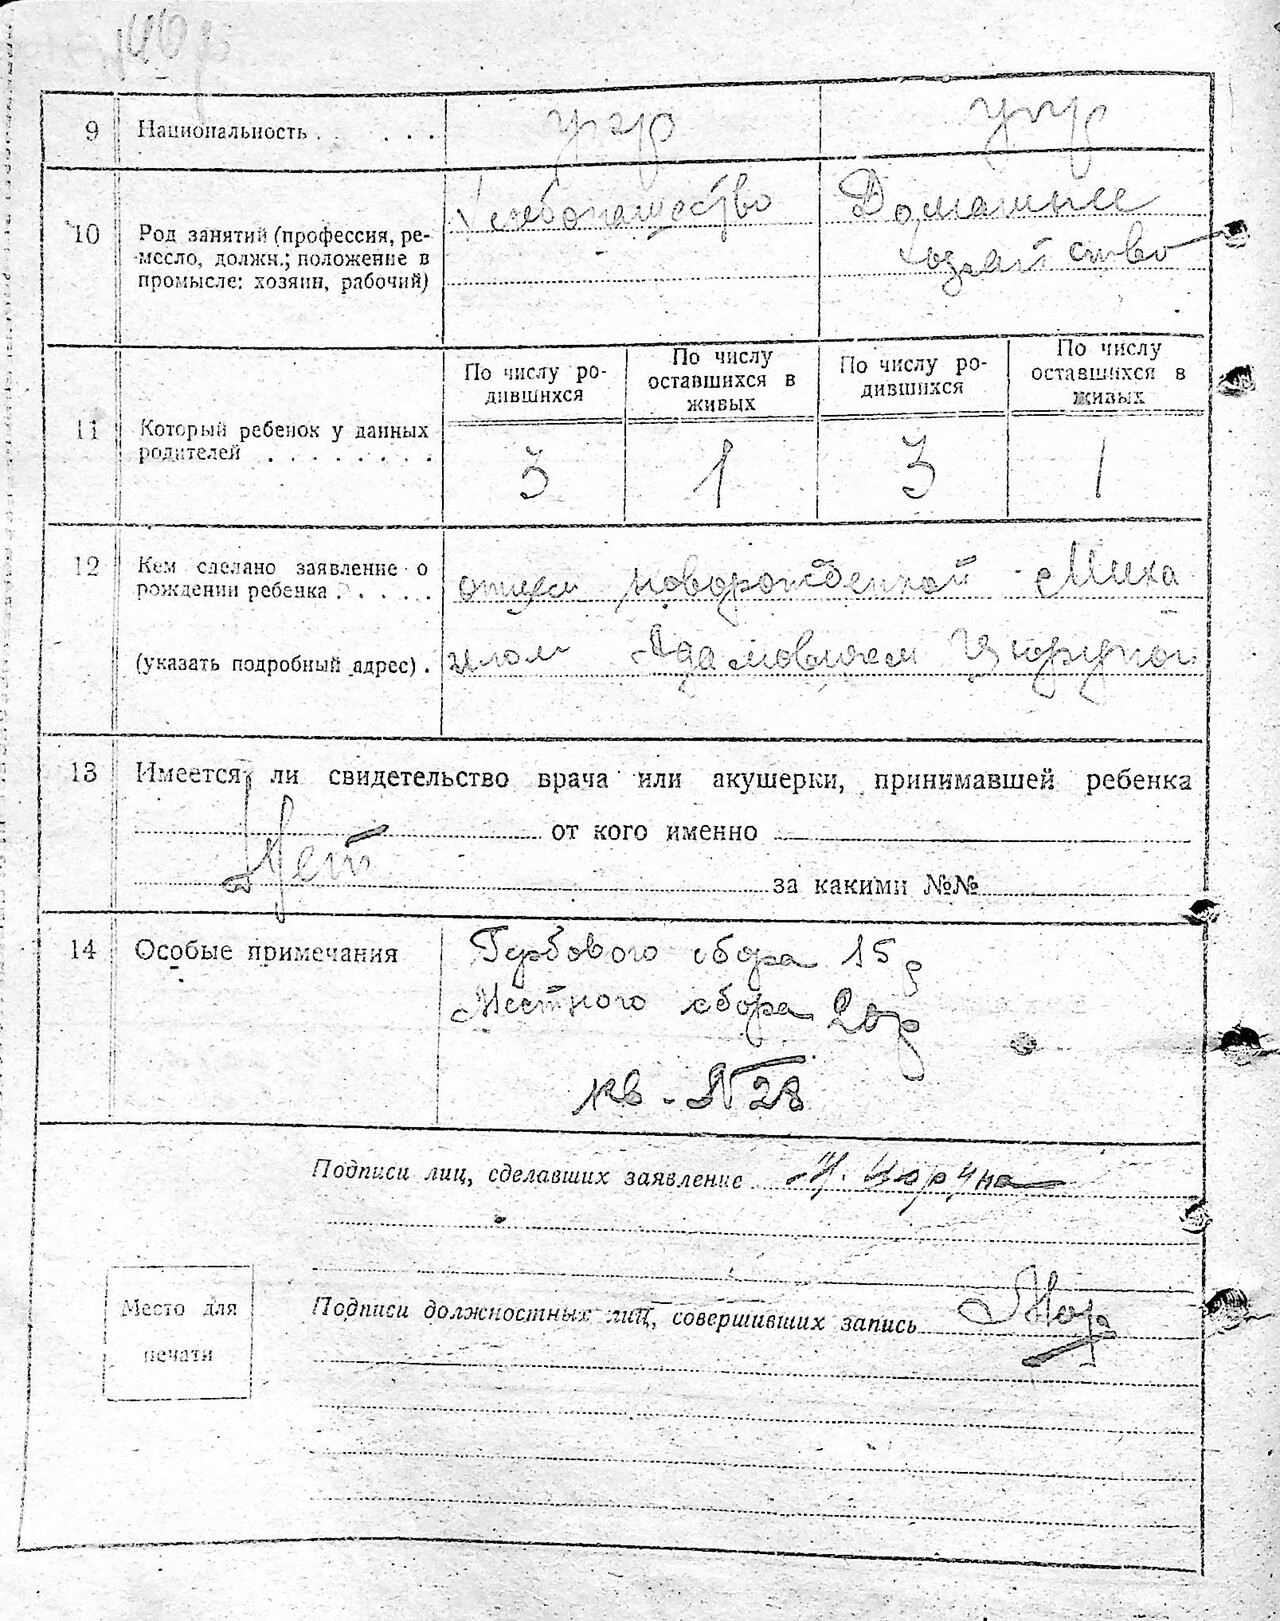 9 Национальность . . . . . укр укр
10 Род занятий (профессия, ре-
месло, должн.; положение в
промысле: хозяин, рабочий)
Хлебопашество
Домашнее
хозяйство
11 Который ребенок у данных
родителей . . . . . . . .
По числу ро-
дившихся
По числу
оставшихся в
живых
По числу ро-
дившихся
По числу
оставшихся в
живых
3 1 3 1
12 Кем сделано заявление о
рождении ребенка . . . .
(указать подробный адрес) .
отцем новорожденной Миха
илом Адамовичем Цюрупой
13 Имеется ли свидетельство врача или акушерки, принимавшей ребенка
от кого именно
Нет
за какими №№
14 Особые примечания
Гербового сбора 15 р
Местного сбора 20 р
кв - № 28
Подписи лиц, сделавших заявление М. Цюрупа
Место для
печати
Подписи должностных лиц, совершивших запись